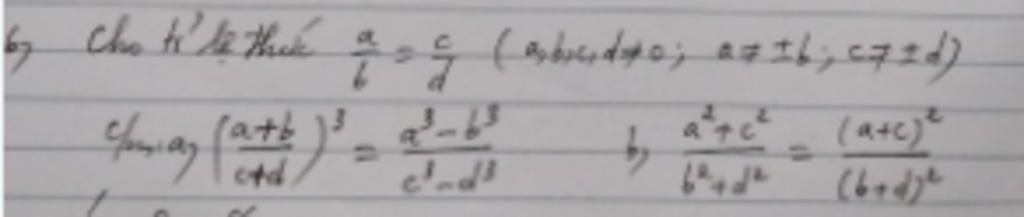 6, Cho tỉ lệ thức a/b = c/d ( a,b,c,d ≠ 0 ; a ≠ ±b ; c ≠ ±d )
c/m. a, ((a+b)/(c+d))³ = (a³-b³)/(c³-d³) b, (a²+c²)/(b²+d²) = (a+c)²/(b+d)²